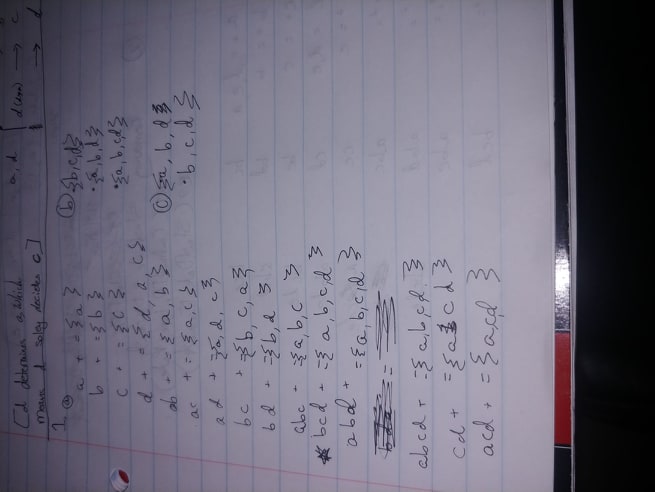 [d determines a, which
means d soley decides c]
a, d
→ c
→ d
1. ⓐ
a + = {a}
b + = {b}
c + = {c}
d + = {d, a, c}
ab + = {a, b}
ac + = {a, c}
ad + = {a, d, c}
bc + = {b, c, a}
bd + = {b, d}
abc + = {a, b, c}
* bcd + = {a, b, c, d}
abd + = {a, b, c, d}
abcd + = {a, b, c, d}
cd + = {a c d}
acd + = {a, c, d}
ⓑ {b, c, d}
• {a, b, d}
• {a, b, c, d}
ⓒ {a, b, d}
• b, c, d }